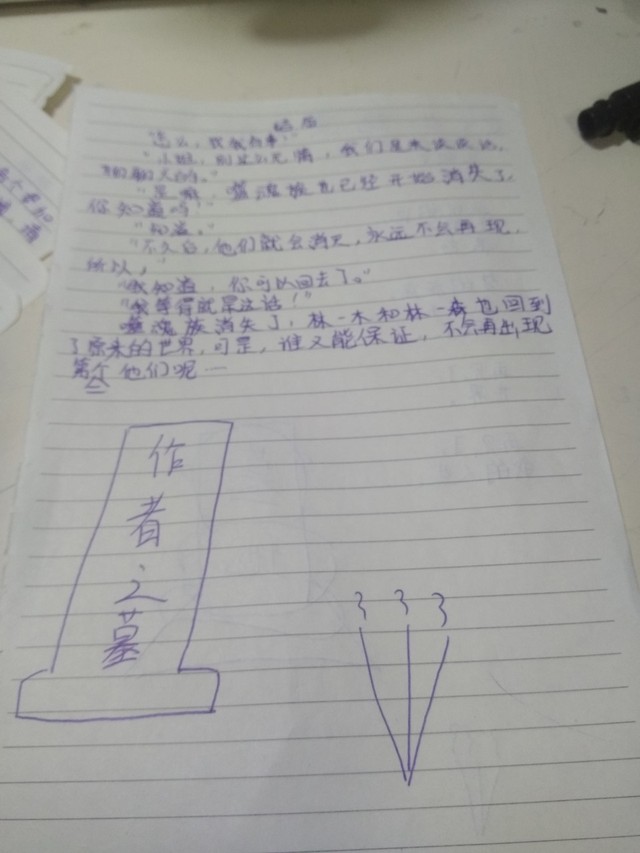 "怎么，找我有事？"
"小姐，别这么无情，我们是来谈谈话，
聊聊天的。"
族也已经开始消失了，
你知道吗？"
"知道。"
"不久后，他们就会消失，永远不会再现，
所以，"
"我知道，你可以回去了。"
"我等得就是这话！"
噬魂族消失了，林一木和林一森也回到
了原来的世界，可是，谁又能保证，不会再出现
第二个他们呢一
作
者
之
墓